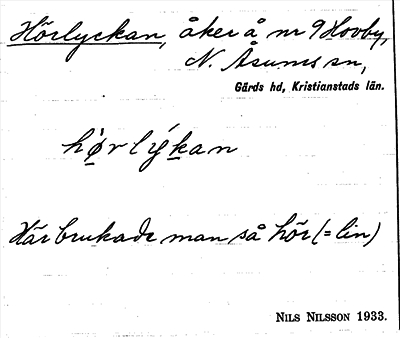 Hörlyckan, åker å nr 9 Hovby,
N. Åsums sn,
Gärds hd, Kristianstads län.
hø̀rlýkan
Här brukade man så hör (= lin)
NILS NILSSON 1933.